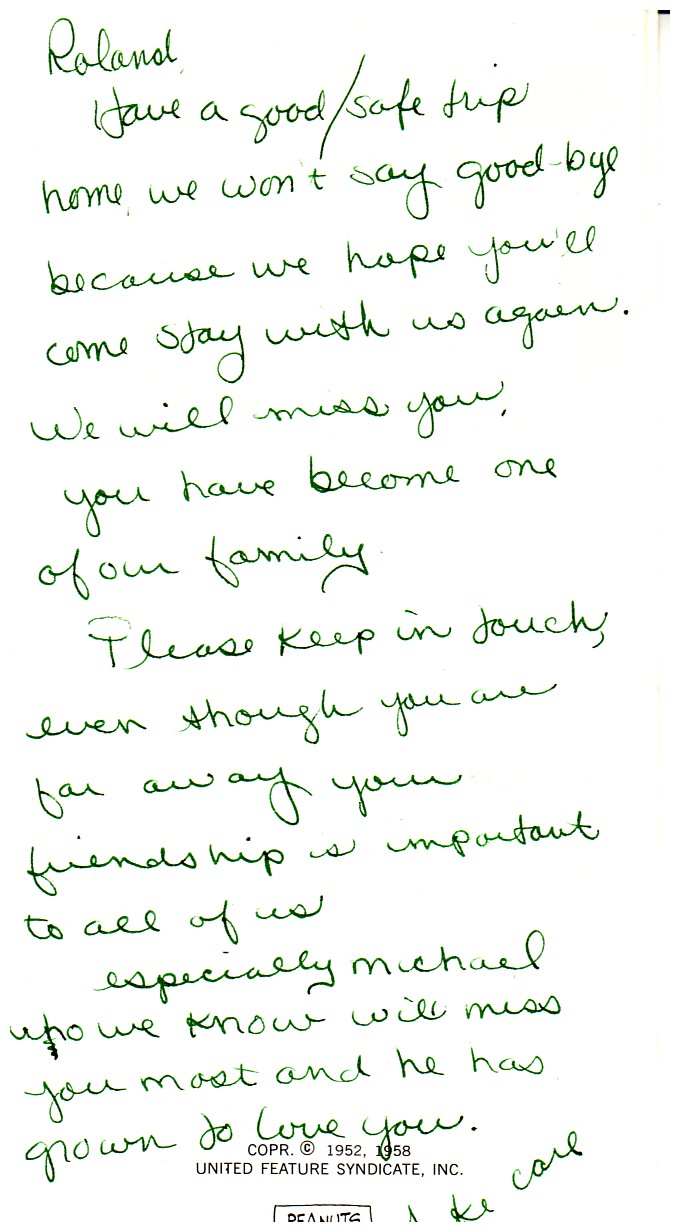 Roland,
Have a good/safe trip
home, we won't say good-bye
because we hope you'll
come stay with us again.
We will miss you,
you have become one
of our family
Please keep in touch,
even though you are
far away your
friendship is important
to all of us
especially michael
who we know will miss
you most and he has
grown to love you.
COPR. © 1952, 1958
UNITED FEATURE SYNDICATE, INC.
care
PEANUTS